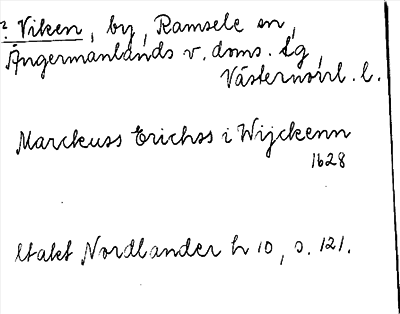 ? Viken, by, Ramsele sn,
Ångermanlands v. doms. tg,
Västernorrl. l.
Marckuss Erichss i Wijckenn
1628
Utakt Nordlander h 10, s. 121.